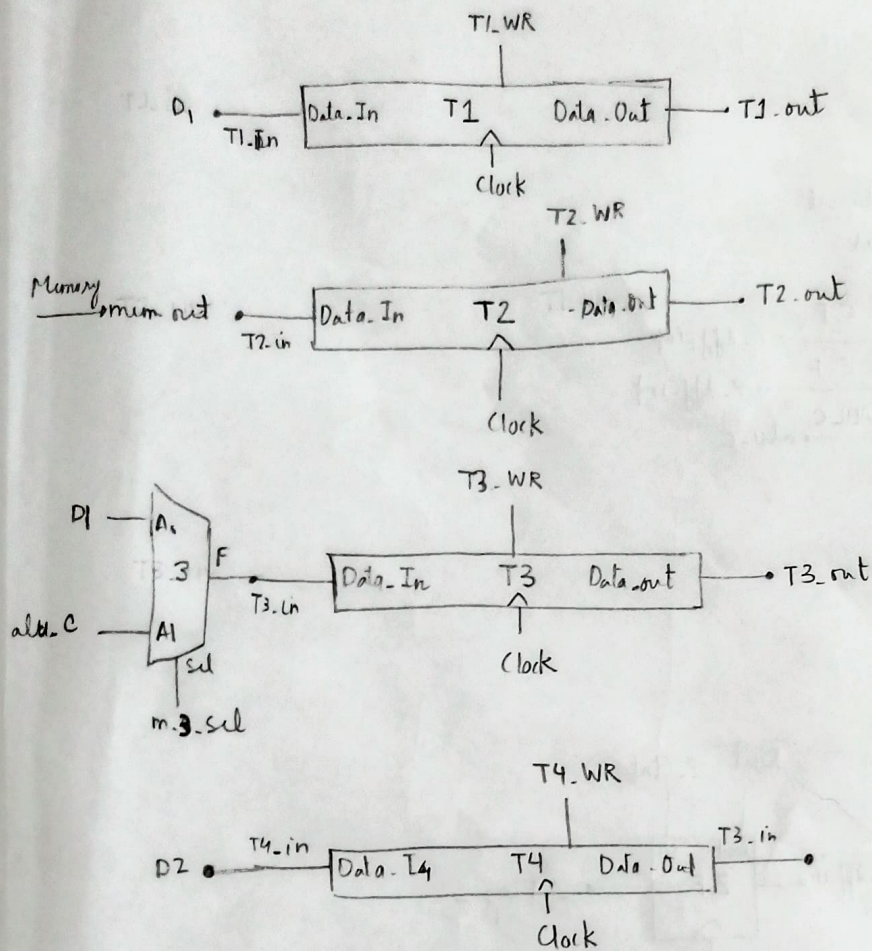 T1_WR
D1 T1_In Data_In T1 Data_Out T1_out
Clock
T2_WR
Memory mem_out T2_in Data_In T2 Data_Out T2_out
Clock
T3_WR
D1 A0
3 F T3_in Data_In T3 Data_out T3_out
alu_C A1
Sel
Clock
m_3_sel
T4_WR
D2 T4_in Data_In T4 Data_Out T3_in
Clock